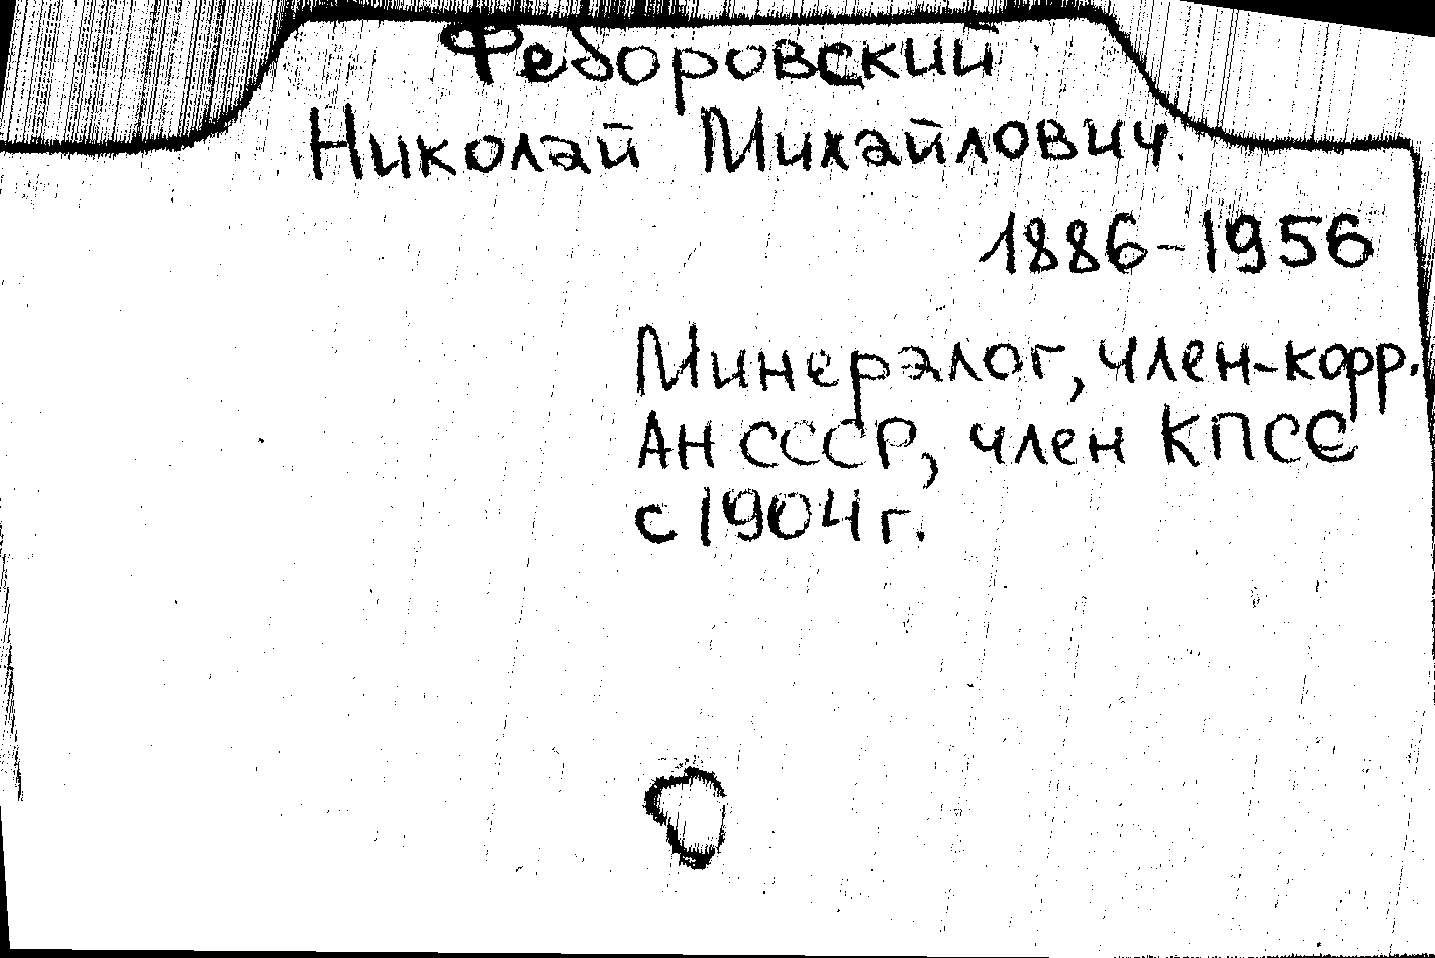 Федоровский
Николай Михайлович.
1886-1956
Минералог, член-корр.
АН СССР, член КПСС
с 1904 г.